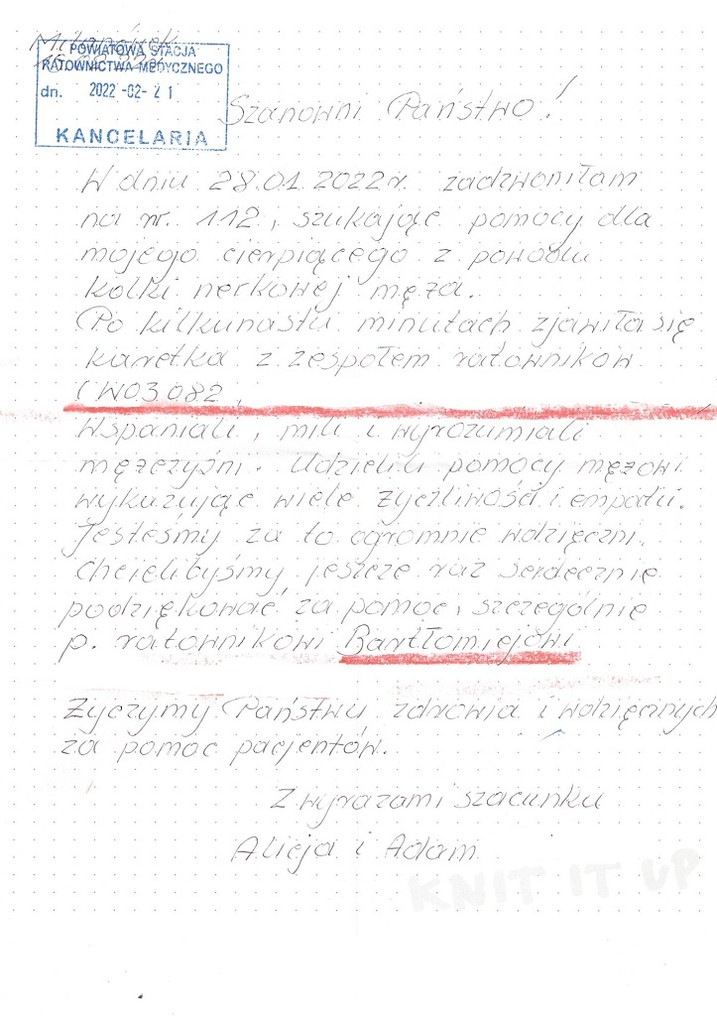 Milanówek
POWIATOWA STACJA
RATOWNICTWA MEDYCZNEGO
dn. 2022 -02- 21
KANCELARIA
Szanowni Państwo!
W dniu 28.01.2022r. zadzwoniłam
na nr. 112, szukając pomocy dla
mojego cierpiącego z powodu
kolki nerkowej męża.
Po kilkunastu minutach zjawiła się
karetka z zespołem ratowników
(W03082,
Wspaniali, mili i wyrozumiali
mężczyźni. Udzielili pomocy mężowi
wykazując wiele życzliwości i empatii.
Jesteśmy za to ogromnie wdzięczni.
Chcielibyśmy jeszcze raz serdecznie
podziękować za pomoc, szczególnie
p. ratownikowi Bartłomiejowi
Życzymy Państwu zdrowia i wdzięcznych
za pomoc pacjentów.
Z wyrazami szacunku
Alicja i Adam
KNIT IT UP